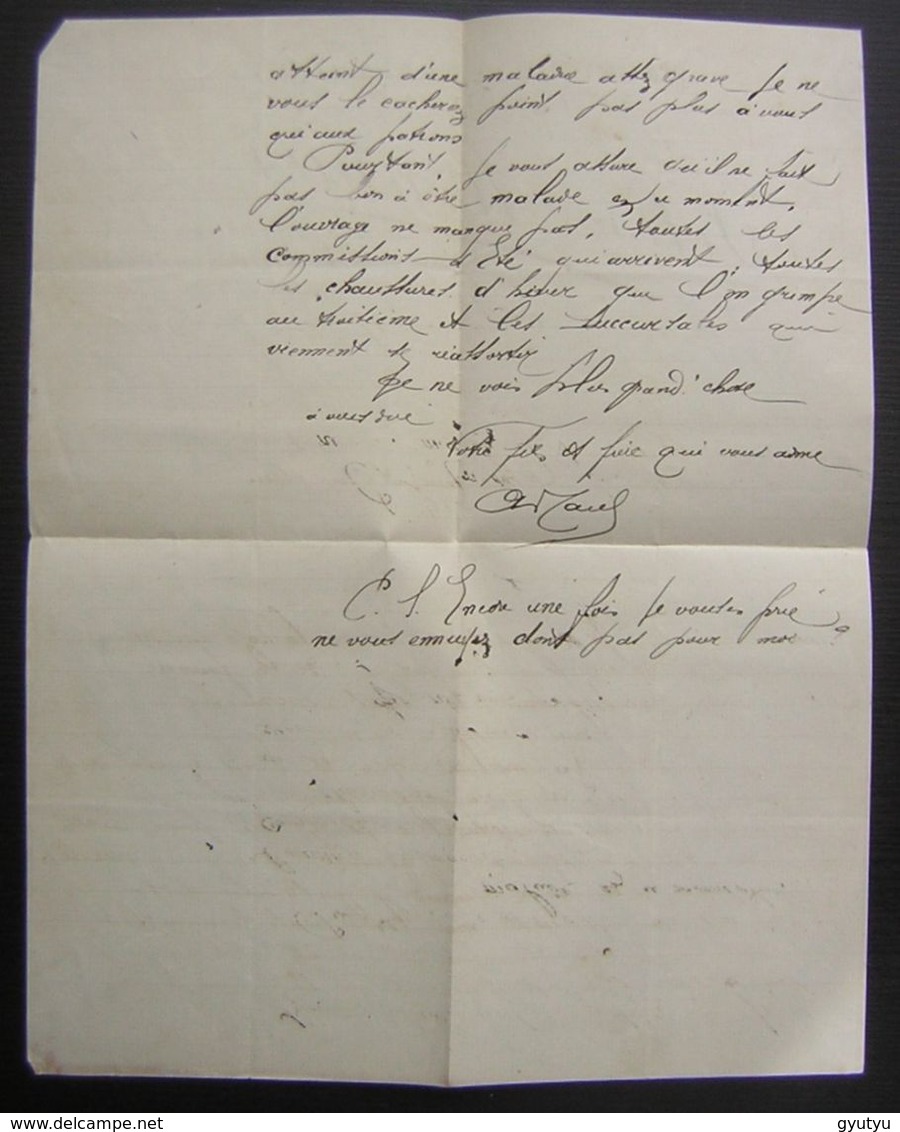 atteint d'une maladie assez grave je ne
vous le cacherez point pas plus à vous
qu'aux patrons
Pourtant, je vous assure qu'il ne fait
pas bon à être malade en ce moment,
l'ouvrage ne manque pas, toutes les
commissions d'Eté qui arrivent, toutes
les chaussures d'hiver que l'on grimpe
au troisième et les succursales qui
viennent se réassortir
Je ne vois plus grand'chose
à vous dire
Votre fils et frère qui vous aime
P. S. Encore une fois je vous en prie
ne vous ennuyez dont pas pour moi
gyutyu